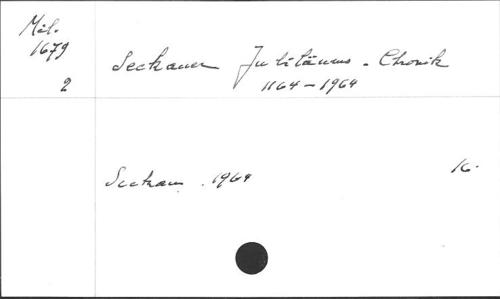 Mel.
1679
2
Seckauer Jubiläums-Chronik
1164-1964
Seckau. 1964
K.